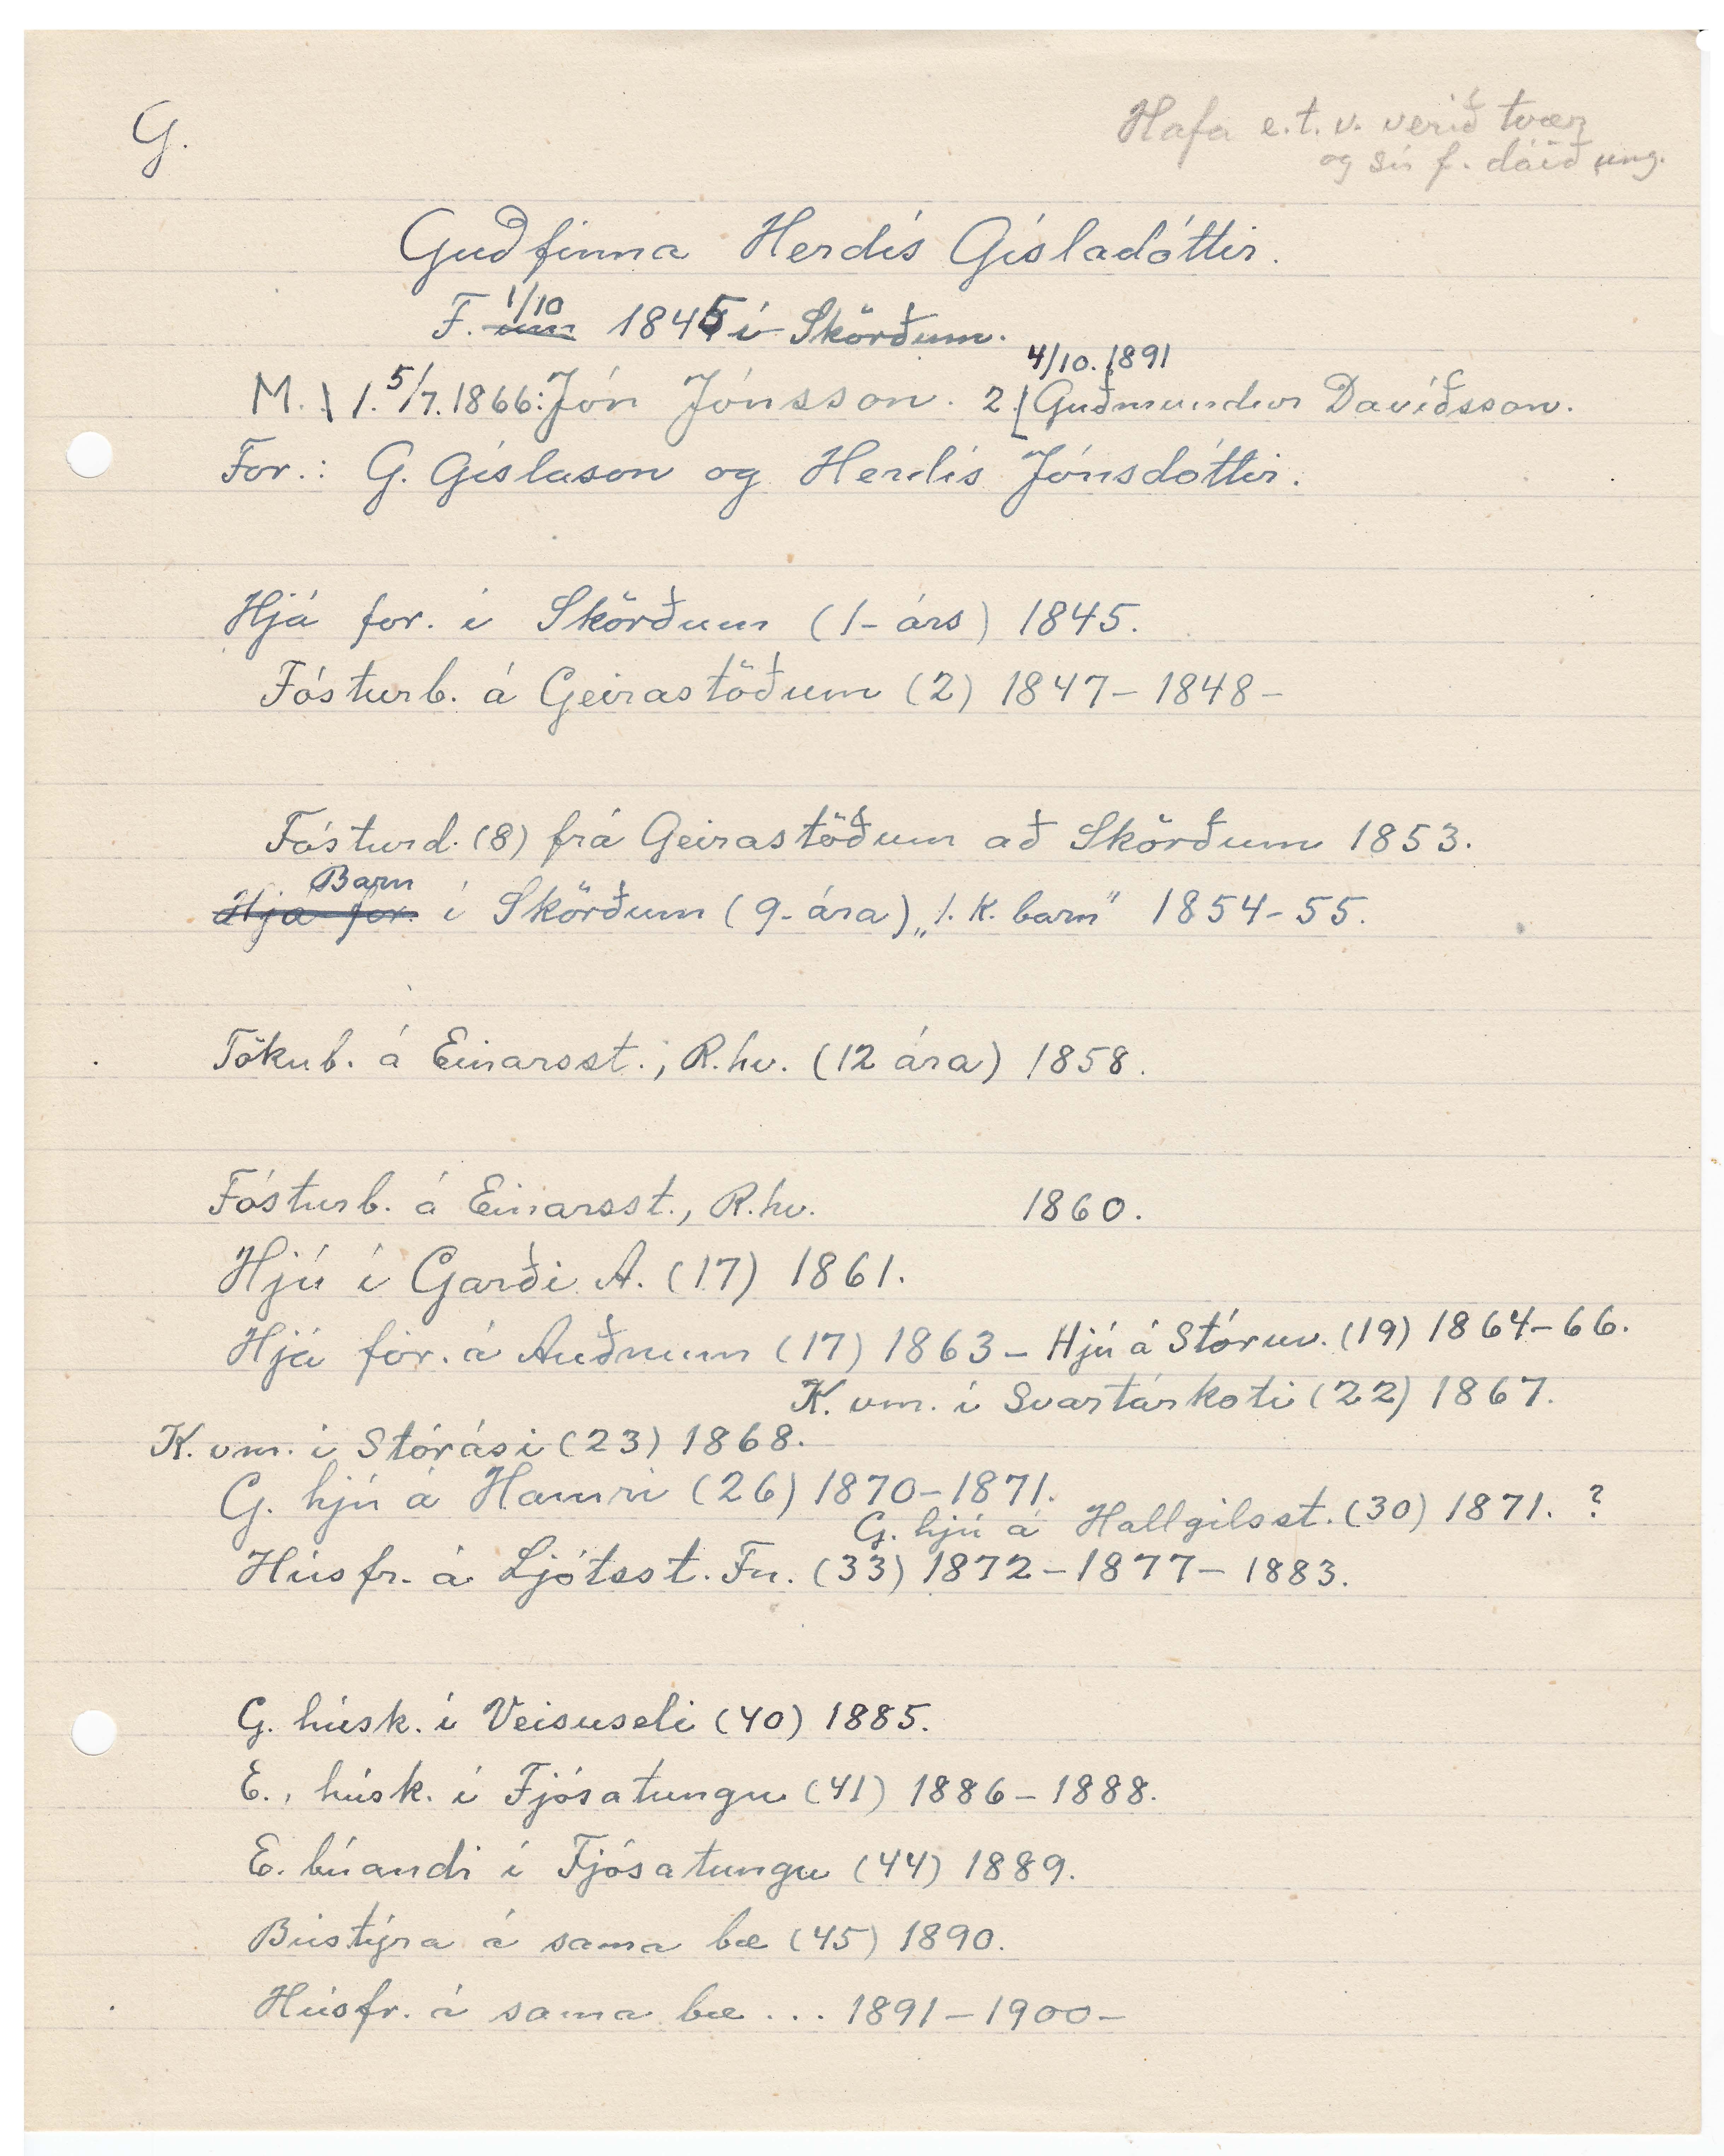 G.
Hafa e.t.v. verið tvær
og sú f. dáið ung.
Guðfinna Herdís Gísladóttir.
F. 1/10 1845 í Skörðum.
4/10. 1891
M. \ 1. 5/7. 1866: Jón Jónsson. 2. [Guðmundur Davíðsson.
For.: G. Gíslason og Herdís Jónsdóttir.
Hjá for. í Skörðum (1-árs) 1845.
Fósturb. á Geirastöðum (2) 1847-1848-
Fósturd. (8) frá Geirastöðum að Skörðum 1853.
Barn
Hjá for. í Skörðum (9-ára) „1. K. barn" 1854-55.
Tökub. á Einarsst., R.hv. (12 ára) 1858.
Fósturb. á Einarsst., R.hv. 1860.
Hjú í Garði A. (17) 1861.
Hjá för. á Auðnum (17) 1863- Hjú á Stóruv. (19) 1864-66.
K. vm. í Svartárkoti (22) 1867.
K. vm. í Stórási (23) 1868.
G. hjú á Hamri (26) 1870-1871.
G. hjú á Hallgilsst. (30) 1871. ?
Húsfr. á Ljótsst. Fn. (33) 1872-1877-1883.
G. húsk. í Veisuseli (40) 1885.
E., húsk. í Fjósatungu (41) 1886-1888.
E. búandi í Fjósatungu (44) 1889.
Bústýra á sama bæ (45) 1890.
Húsfr. á sama bæ ... 1891-1900-